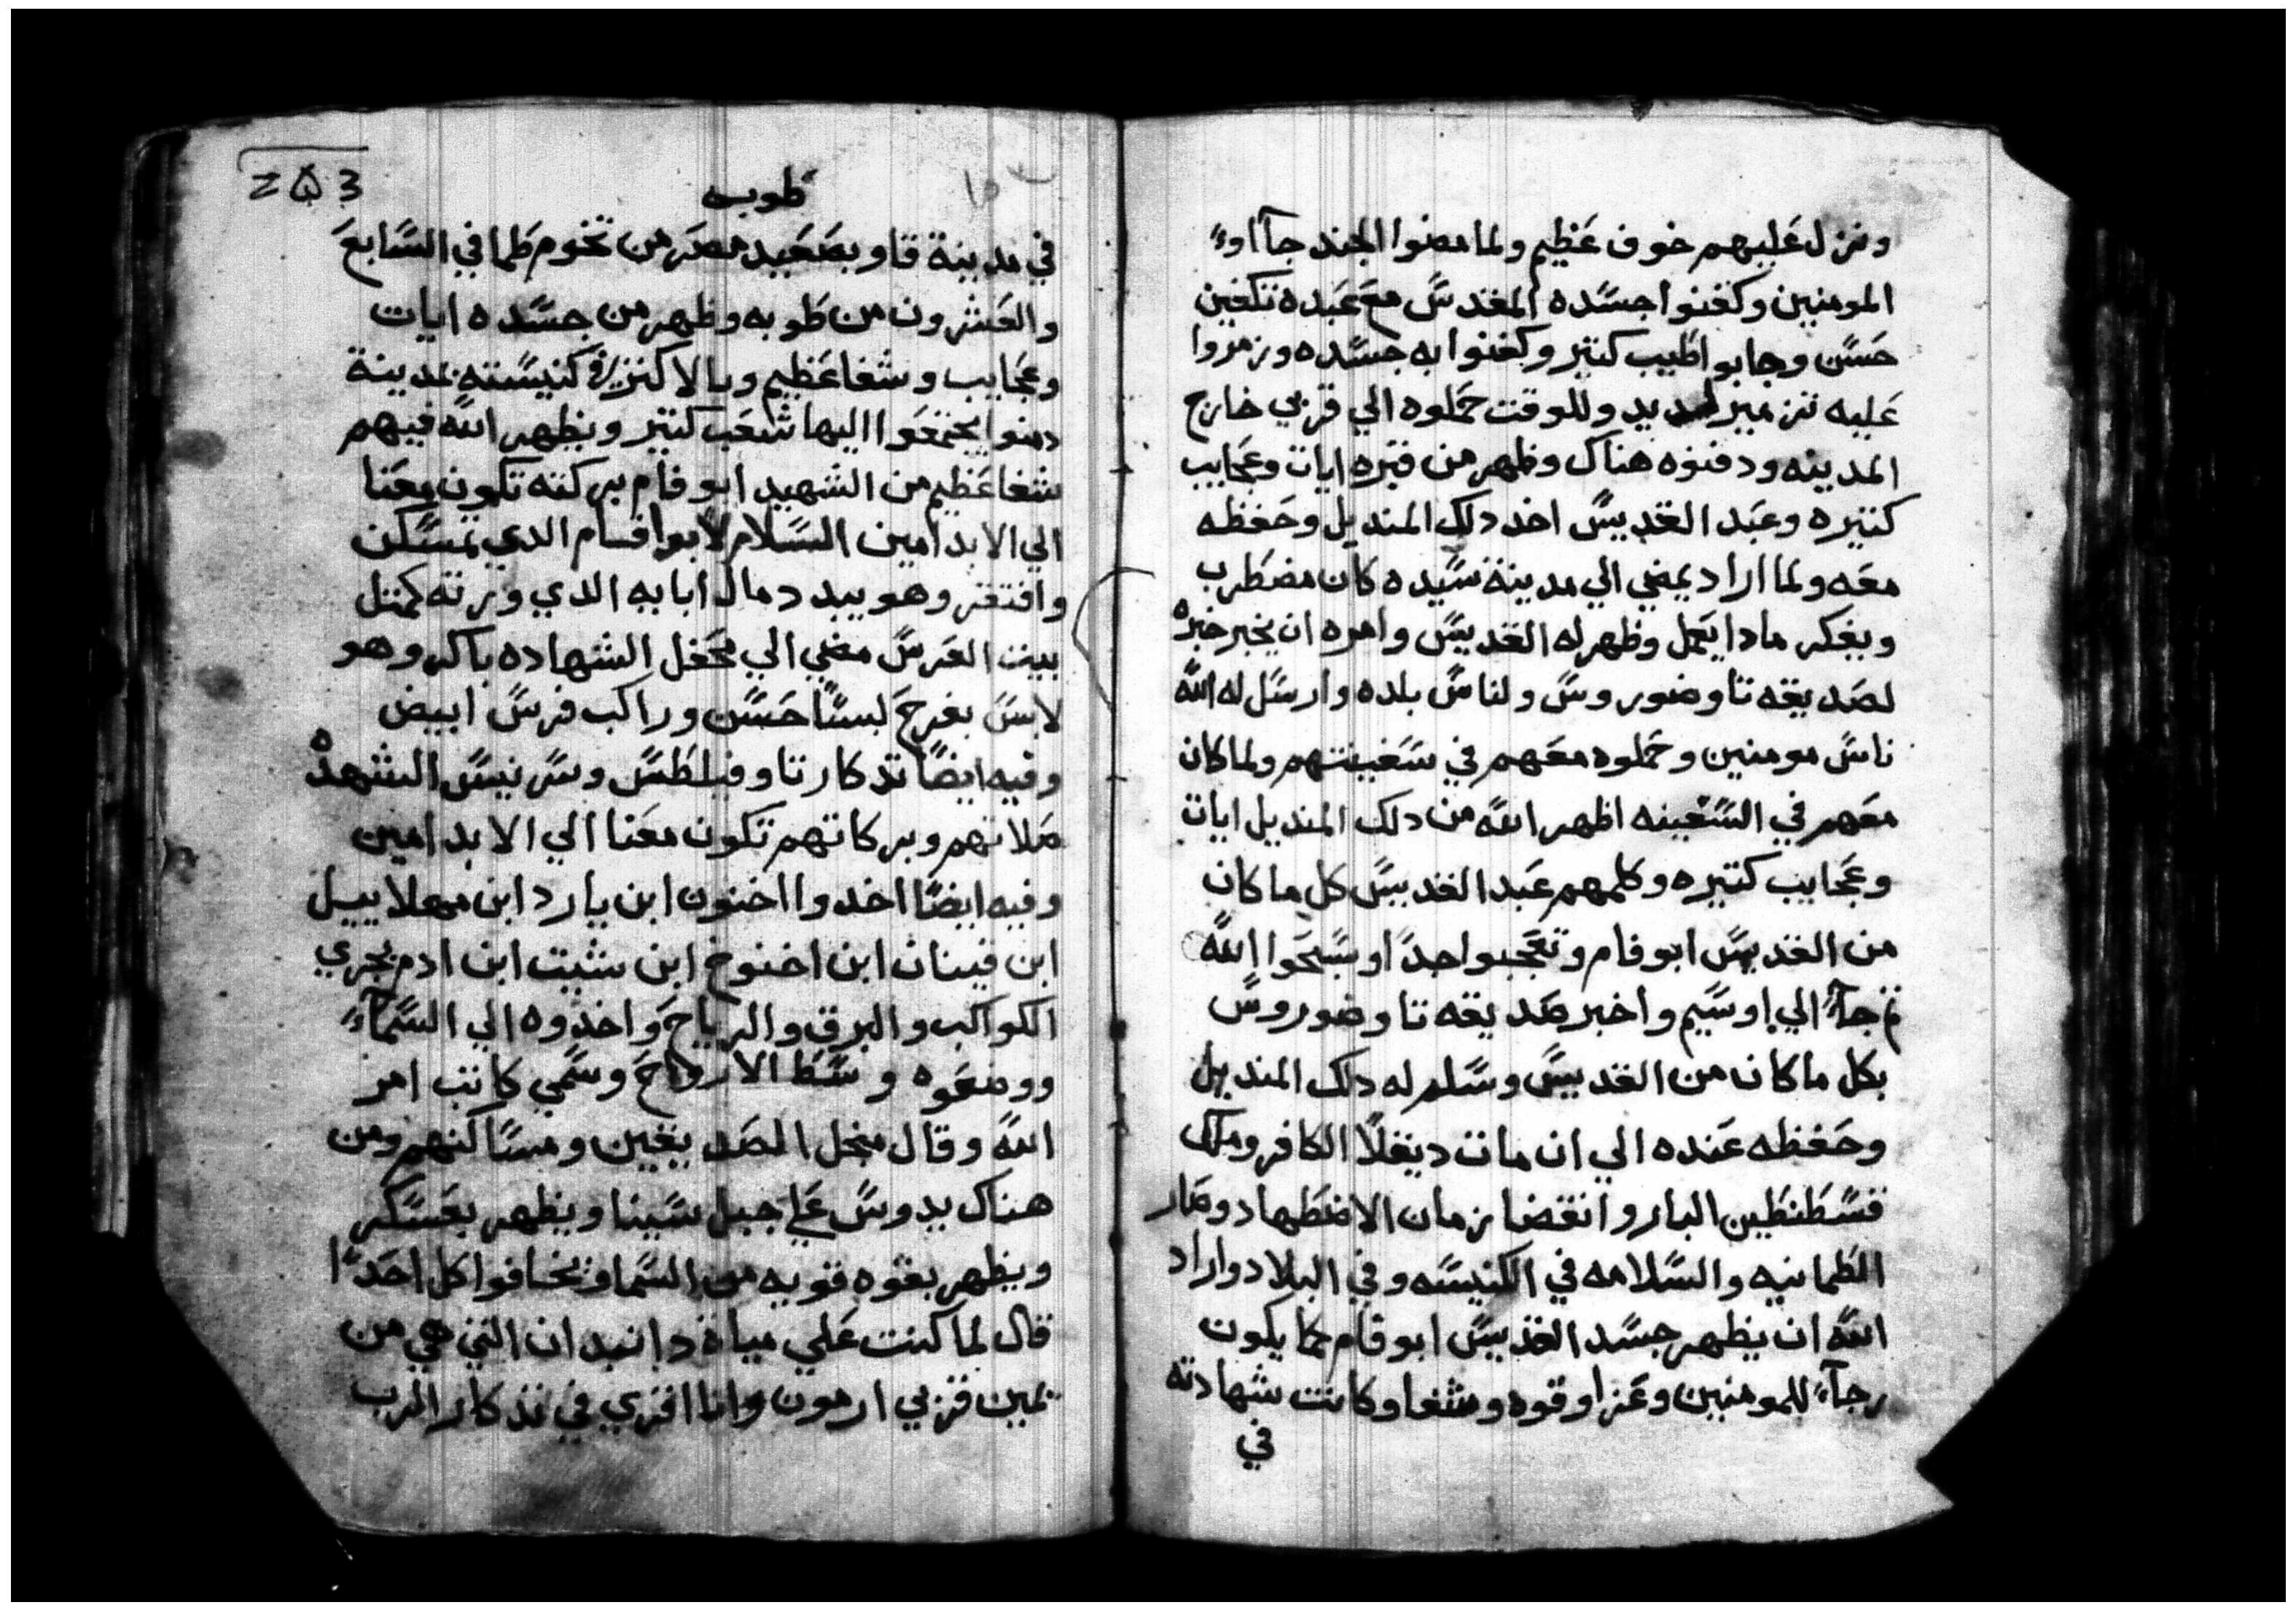 ونزل عليهم خوف عظيم ولما مضوا الجند جآاوا
المومنين وكفنوا جسده المقدس مع عبده تكفين
حسن وجابوا طيب كتير وكفنوا به جسده وزمروا
عليه تزمير لديد وللوقت حملوه الي قرب خارج
المدينه ودفنوه هناك وظهر من قبره ايات وعجايب
كتيره وعبد القديس اخد دلك المنديل وحفظه
معه ولما اراد يمضي الي مدينة سيده كان مضطرب
ويفكر مادا يعمل وظهر له القديس وامره ان يخبر خبره
لصديقه تاوضوروس ولناس بلده وارسل له الله
ناس مومنين وحملوه معهم في سفينتهم ولما كان
معهم في السفينه اظهر الله من دلك المنديل ايات
وعجايب كتيره وكلمهم عبد القديس كل ما كان
من القديس ابو فام وتعجبوا جدا وسبحوا الله
تم جآء الي اوسيم واخبر صديقه تاوضوروس
بكل ما كان من القديس وسلم له دلك المنديل
وحفظه عنده الي ان مات ديقلا الكافر وملك
قسطنطين البار وانقضا زمان الاضطهاد وصار
الطمانيه والسلامه في الكنيسه وفي البلاد واراد
الله ان يظهر جسد القديس ابو فام كما يكون
رجآء للمومنين وعزا وقوه وشفا وكانت شهادته
في
طوبه
في مدينة قاو بصعيد مصر من تخوم طما في السابع
والعشرون من طوبه وظهر من جسده ايات
وعجايب وشفا عظيم وبالاكتر في كنيسته بمدينة
يجتمعوا اليها شعب كتير ويظهر الله فيهم
شفا عظيم من الشهيد ابو فام بركته تكون معنا
الي الابد امين السلام لابوا فام الدي تمسكن
وافتقر وهو يبدد مال ابايه الدي ورته كمتل
بيت العرس مضي الي محفل الشهاده باكر وهو
لابس بفرح لبسا حسن وراكب فرس ابيض
وفيه ايضا تدكار تاوفيلطس وسرنيس الشهده
صلاتهم وبركاتهم تكون معنا الي الابد امين
وفيه ايضا اخدوا اخنوخ ابن يارد ابن مهلاييل
ابن قينان ابن اخنوخ ابن شيت ابن ادم بجري
الكواكب والبرق والرياح واخدوه الي السمآء
ووضعوه وسط الارواح وسمي كاتب امر
الله وقال من اجل الصديقين ومساكنهم ومن
هناك يدوس علي جبل سينا ويظهر بعسكر
ويظهر بقوه قويه من السما ويخافوا كل احدا
قال لما كنت علي مياة دان التي هي من
يمين قربي ارمون وانا اقري في تدكار الرب